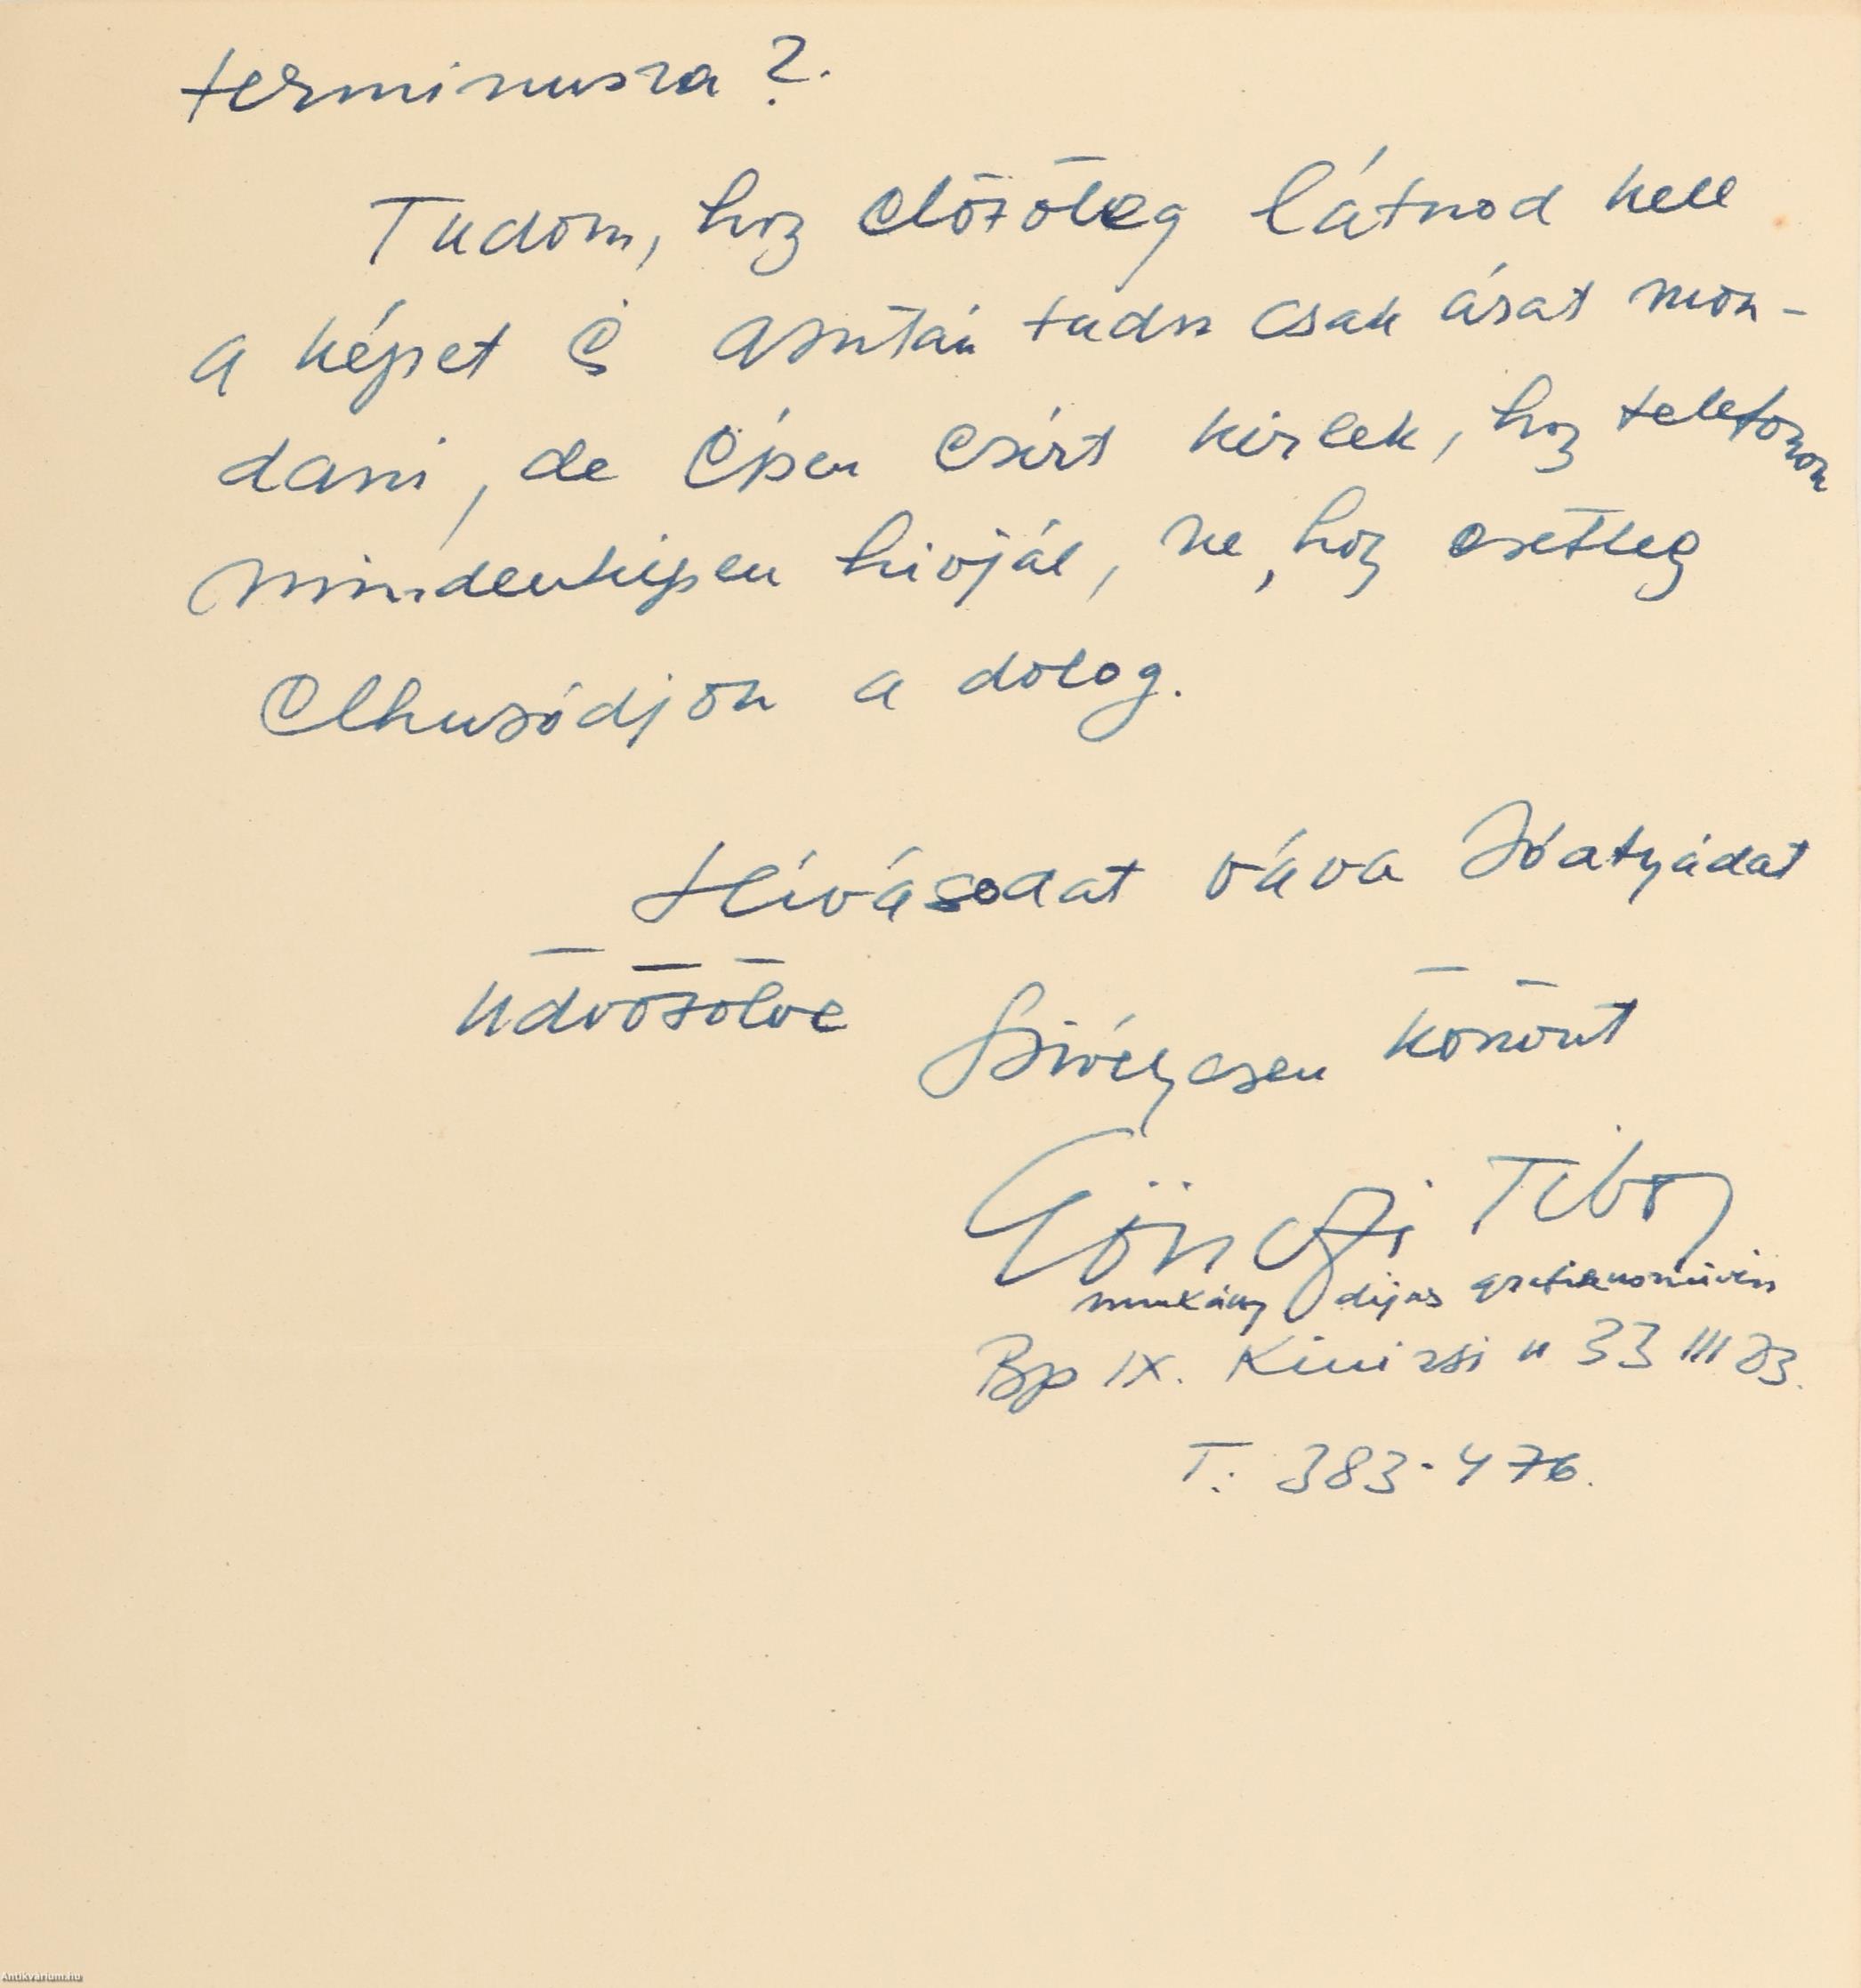 terminusra?
Tudom, hog előzőleg látnod kell
a képet és azután tudsz csak árat mon-
dani, de épen ezért kérlek, hog telefonon
mindenképen hívjál, ne, hog esetleg
elhuzódjon a dolog.
Hívásodat várva Jóatyádat
üdvözölve Szivélyesen köszönt
Gönczi Tibor
munkácsy dijas grafikusművész
Bp IX. Kinizsi u 33 III 23.
T: 383-476.
Antikvárium.hu